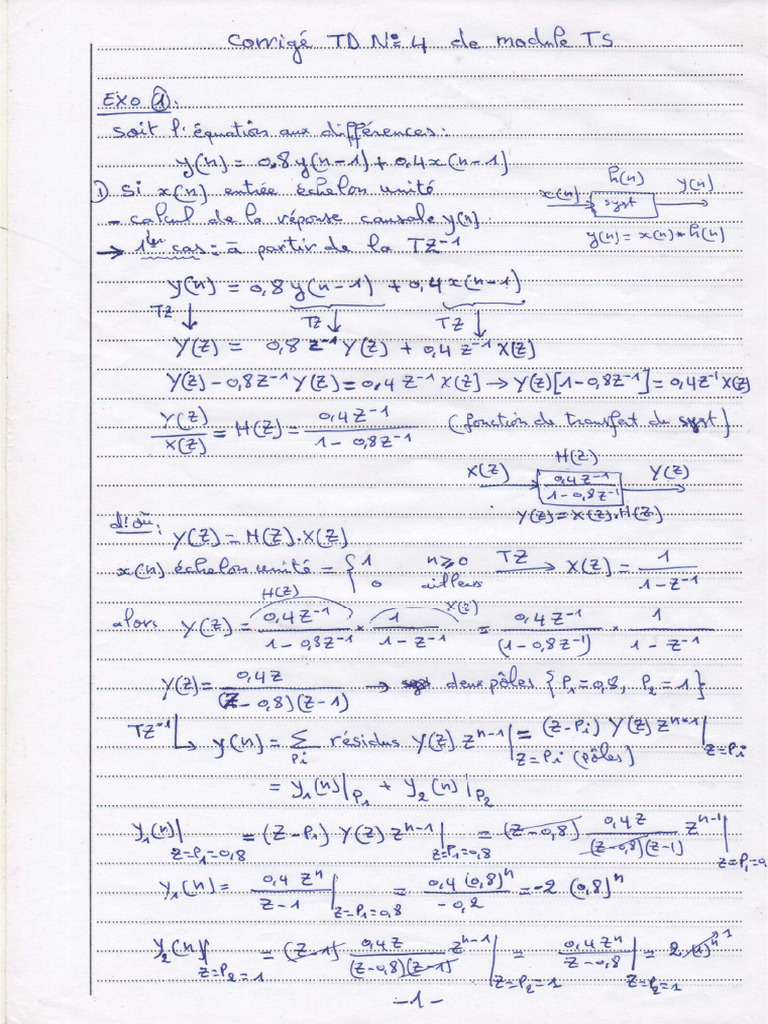 Corrigé TD N°: 4 de module TS
EXO ①:
Soit l'équation aux différences:
y(n) = 0,8y(n-1) + 0,4x(n-1)
1) Si x(n) entrée échelon unité
x(n) → h(n) syst → y(n)
- calcul de la réponse causale y(n)
y(n) = x(n) * h(n)
→ 1er cas: à partir de la TZ⁻¹
y(n) = 0,8y(n-1) + 0,4x(n-1)
TZ ↓ TZ ↓ TZ ↓
Y(z) = 0,8 z⁻¹ Y(z) + 0,4 z⁻¹ X(z)
Y(z) - 0,8z⁻¹ Y(z) = 0,4 z⁻¹ X(z) → Y(z)[1-0,8z⁻¹] = 0,4z⁻¹X(z)
Y(z)/X(z) = H(z) = 0,4z⁻¹ / 1 - 0,8z⁻¹ (fonction de transfat de syst)
H(z)
X(z) → 0,4z⁻¹ / 1-0,8z⁻¹ → Y(z)
Y(z) = X(z).H(z)
d'où:
Y(z) = H(z).X(z)
x(n) échelon unité = { 1 n≥0 TZ → X(z) = 1 / 1-z⁻¹
0 ailleurs
H(z) X(z)
alors Y(z) = 0,4z⁻¹ / 1-0,8z⁻¹ * 1 / 1-z⁻¹ = 0,4z⁻¹ / (1-0,8z⁻¹) * 1 / 1-z⁻¹
Y(z) = 0,4z / (z-0,8)(z-1) → deux pôles {P₁=0,8, P₂=1}
TZ⁻¹ ↳ y(n) = Σ Pi résidus Y(z) zⁿ⁻¹ | z=Pi (pôles) = (z-Pi) Y(z) zⁿ⁻¹ | z=Pi
= y₁(n)|P₁ + y₂(n)|P₂
y₁(n)| z=P₁=0,8 = (z-P₁) Y(z) zⁿ⁻¹ | z=P₁=0,8 = (z-0,8) 0,4z / (z-0,8)(z-1) zⁿ⁻¹ | z=P₁=0,
y₁(n) = 0,4 zⁿ / z-1 | z=P₁=0,8 = 0,4 (0,8)ⁿ / -0,2 = -2 (0,8)ⁿ
y₂(n)| z=P₂=1 = (z-1) 0,4z / (z-0,8)(z-1) zⁿ⁻¹ | z=P₂=1 = 0,4zⁿ / z-0,8 | z=P₂=1 = 2 (1)ⁿ 1
-1-